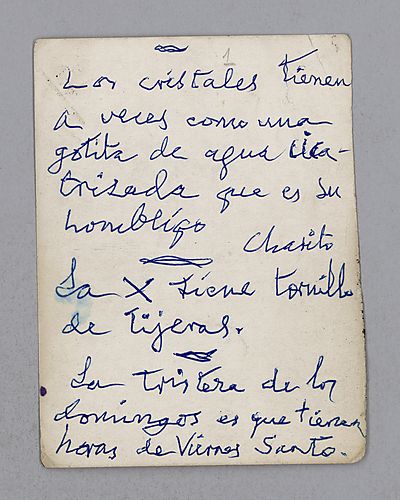 1
Los cristales tienen
a veces como una
gotita de agua cica-
trizada que es su
homblígo
Charito
La X tiene tornillo
de tijeras.
La tristeza de los
domingos es que tienen
horas de Viernes Santo.